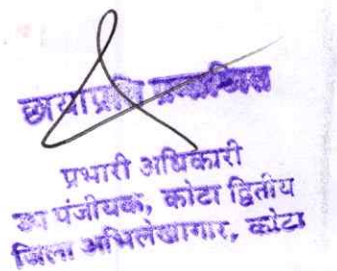 छायाप्रति प्रमाणित
प्रभारी अधिकारी
उप पंजीयक, कोटा द्वितीय
जिला अभिलेखागार, कोटा